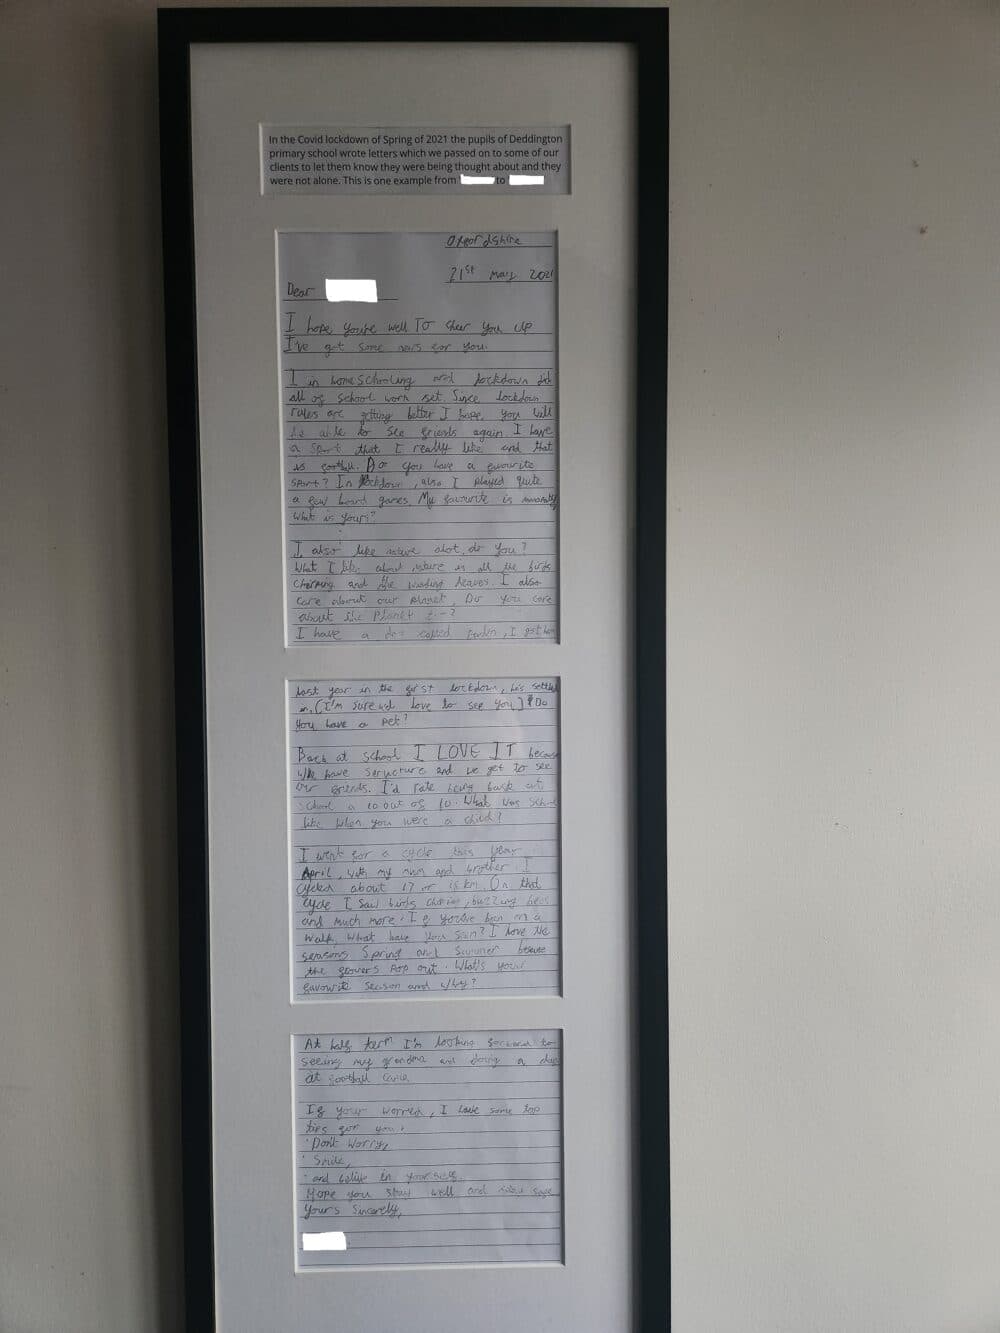 In the Covid lockdown of Spring of 2021 the pupils of Deddington
primary school wrote letters which we passed on to some of our
clients to let them know they were being thought about and they
were not alone. This is one example from to
Oxfordshire
21st May 2021
Dear
I hope you're well To chear you up
I've got some news for you.
I in homeschooling and lockdown did
all of school work set. Since lockdown
rules are getting better I hope, you will
be able to see friends again. I have
a sport that I really like and that
is football. Do you have a favourite
sport? In lockdown, also I played quite
a few board games. My favourite is
what is yours?
I also like nature alot, do you?
What I like about nature is all the birds
and the leaves. I also
care about our planet. Do you care
about the Planet
I have a dog called , I got him
last year in the first lockdown, he's settled
in. (I'm sure love to see you) Do
you have a pet?
Back at school I LOVE IT because
we have structure and we get to see
our friends. I'd rate being back at
school a 10 out of 10. What was school
like when you were a child?
I went for a cycle this year
April, with my mum and brother. I
cycled about 17 or 18 km. On that
cycle I saw birds , buzzing bees
and much more. If you've been on a
walk, what have you seen? I love the
seasons Spring and Summer because
the flowers pop out. What's your
favourite season and why?
At half term I'm looking forward to
seeing my grandma and doing a day
at football
If your worred, I have some top
tips for you.
· Don't worry,
· Smile,
· and belive in yourself
Hope you stay well and safe
Yours Sincerely,